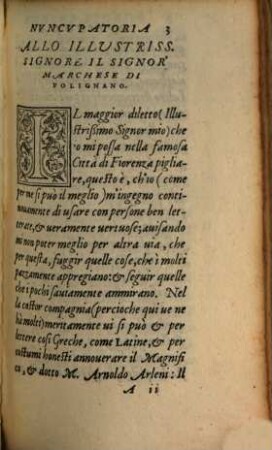 NVNCVPATORIA 3
ALLO ILLVSTRISS.
SIGNORE IL SIGNOR
MARCHESE DI
POLIGNANO.
IL maggior diletto (Illu-
strissimo Signor mio) che
io mi possa nella famosa
Città di Fiorenza piglia-
re, questo è, ch'io (come
per me si puo il meglio) m'ingegno conti-
nouamente di usare con persone ben let-
terate, & ueramente uertuose; auisando
mi non poter meglio per altra uia, che
per questa, fuggir quelle cose, che i molti
pazzamente appregiano: & seguir quelle
che i pochi sauiamente ammirano. Nel
la costor compagnia (percioche qui ue ne
hà molti) meritamente ui si può & per
lettere cosi Greche, come Latine, & per
costumi honesti annouerare il Magnifi
co, & dotto M. Arnoldo Arleni: Il
A ii